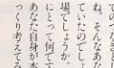 てのつなぎと
ね。そんなあな
ていたのでし
場でしょうか。
にとって何です
あなた自身が本
っくり考えてみ